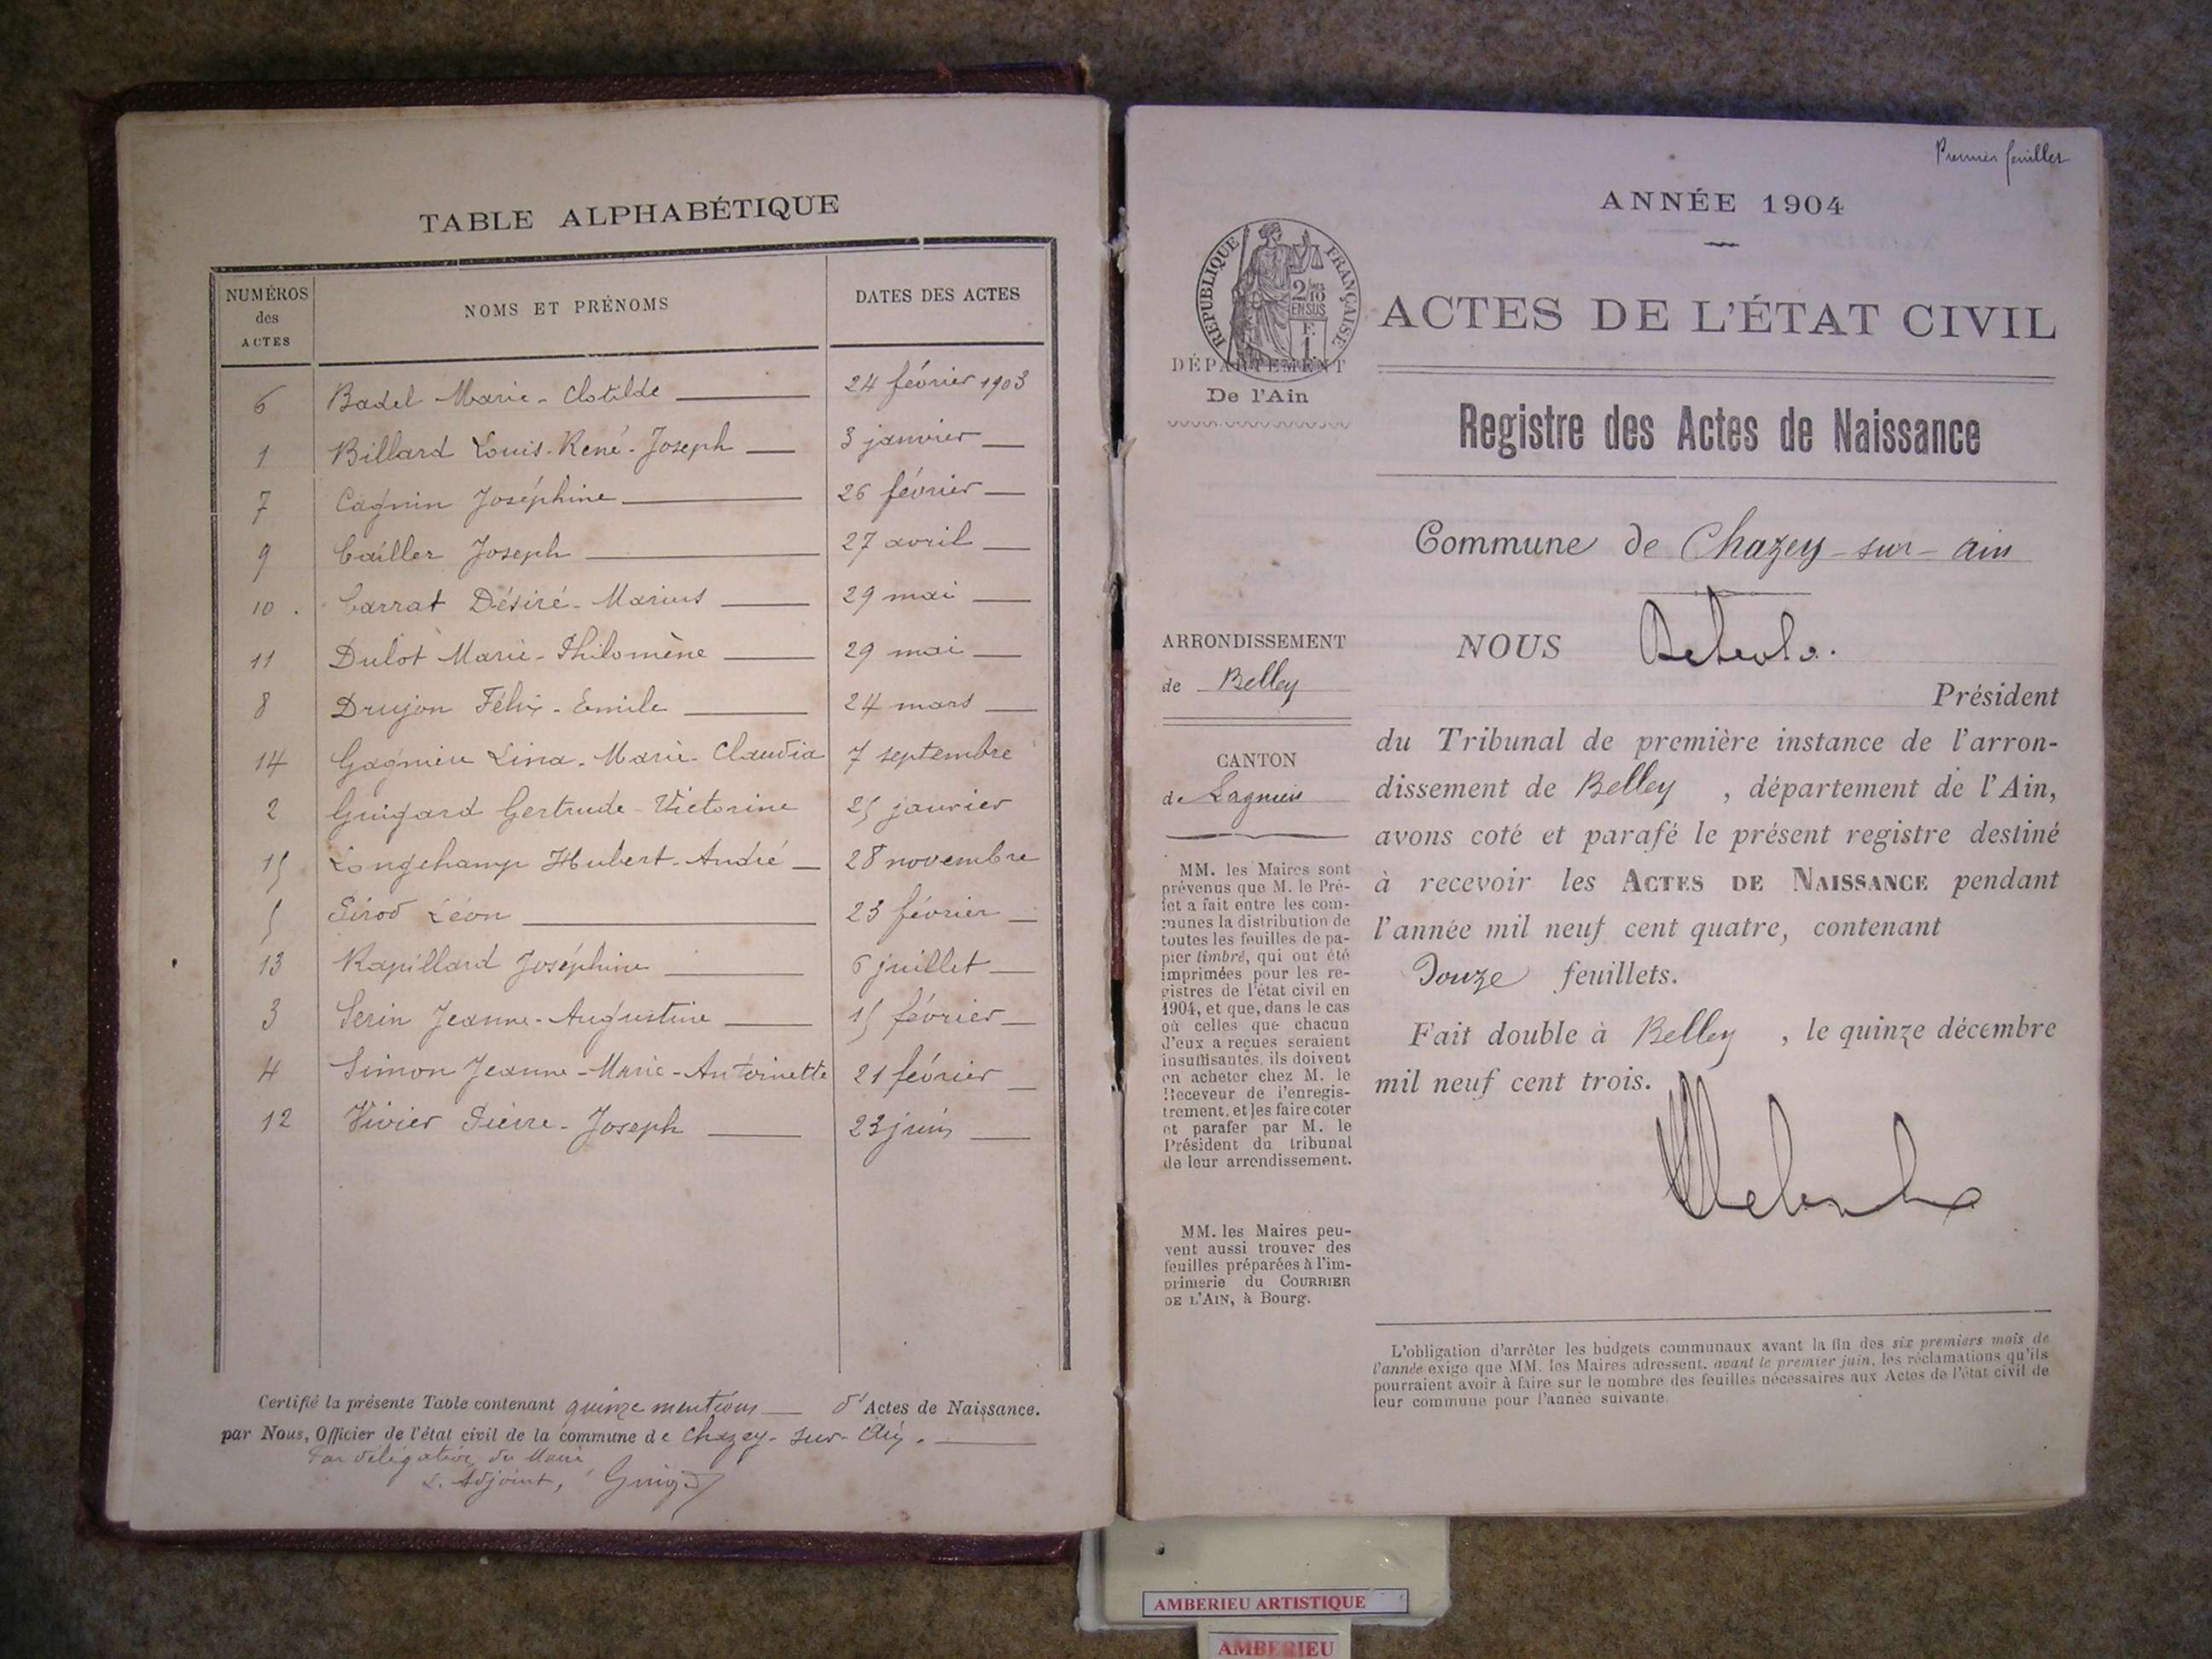 TABLE ALPHABÉTIQUE
NUMÉROS des ACTES NOMS ET PRÉNOMS DATES DES ACTES
6 Badel Marie-Clotilde 24 février 1903
1 Billard Louis-René-Joseph 3 janvier
7 Cagnin Joséphine 26 février
9 Cailler Joseph 27 avril
10 Carrat Désiré-Marius 29 mai
11 Dulot Marie-Philomène 29 mai
8 Drujon Félix-Emile 24 mars
14 Gagnieu Lina-Marie-Claudia 7 septembre
2 Guigard Gertrude-Victorine 25 janvier
15 Longchamp Hubert-André 28 novembre
5 Pirod Léon 23 février
13 Rapillard Joséphine 6 juillet
3 Serin Jeanne-Augustine 15 février
4 Simon Jeanne-Marie-Antoinette 21 février
12 Vivier Pierre-Joseph 23 juin
Certifié la présente Table contenant quinze mentions d'Actes de Naissance.
par Nous, Officier de l'état civil de la commune de Chazey-sur-Ain.
Par délégation du Maire
L'Adjoint,
Premier feuillet
ANNÉE 1904
RÉPUBLIQUE FRANÇAISE
2/10 EN SUS
F.
1.
ACTES DE L'ÉTAT CIVIL
DÉPARTEMENT
De l'Ain
Registre des Actes de Naissance
Commune de Chazey-sur-Ain
ARRONDISSEMENT
de Belley
CANTON
de Lagnieu
MM. les Maires sont
prévenus que M. le Pré-
fet a fait entre les com-
munes la distribution de
toutes les feuilles de pa-
pier timbré, qui ont été
imprimées pour les re-
gistres de l'état civil en
1904, et que, dans le cas
où celles que chacun
d'eux a reçues seraient
insuffisantes, ils doivent
en acheter chez M. le
Receveur de l'enregis-
trement, et les faire coter
et parafer par M. le
Président du tribunal
de leur arrondissement.
MM. les Maires peu-
vent aussi trouver des
feuilles préparées à l'im-
primerie du COURRIER
DE L'AIN, à Bourg.
NOUS
Président
du Tribunal de première instance de l'arron-
dissement de Belley, département de l'Ain,
avons coté et parafé le présent registre destiné
à recevoir les ACTES DE NAISSANCE pendant
l'année mil neuf cent quatre, contenant
Douze feuillets.
Fait double à Belley, le quinze décembre
mil neuf cent trois.
L'obligation d'arrêter les budgets communaux avant la fin des six premiers mois de
l'année exige que MM. les Maires adressent, avant le premier juin, les réclamations qu'ils
pourraient avoir à faire sur le nombre des feuilles nécessaires aux Actes de l'état civil de
leur commune pour l'année suivante.
AMBERIEU ARTISTIQUE
AMBERIEU